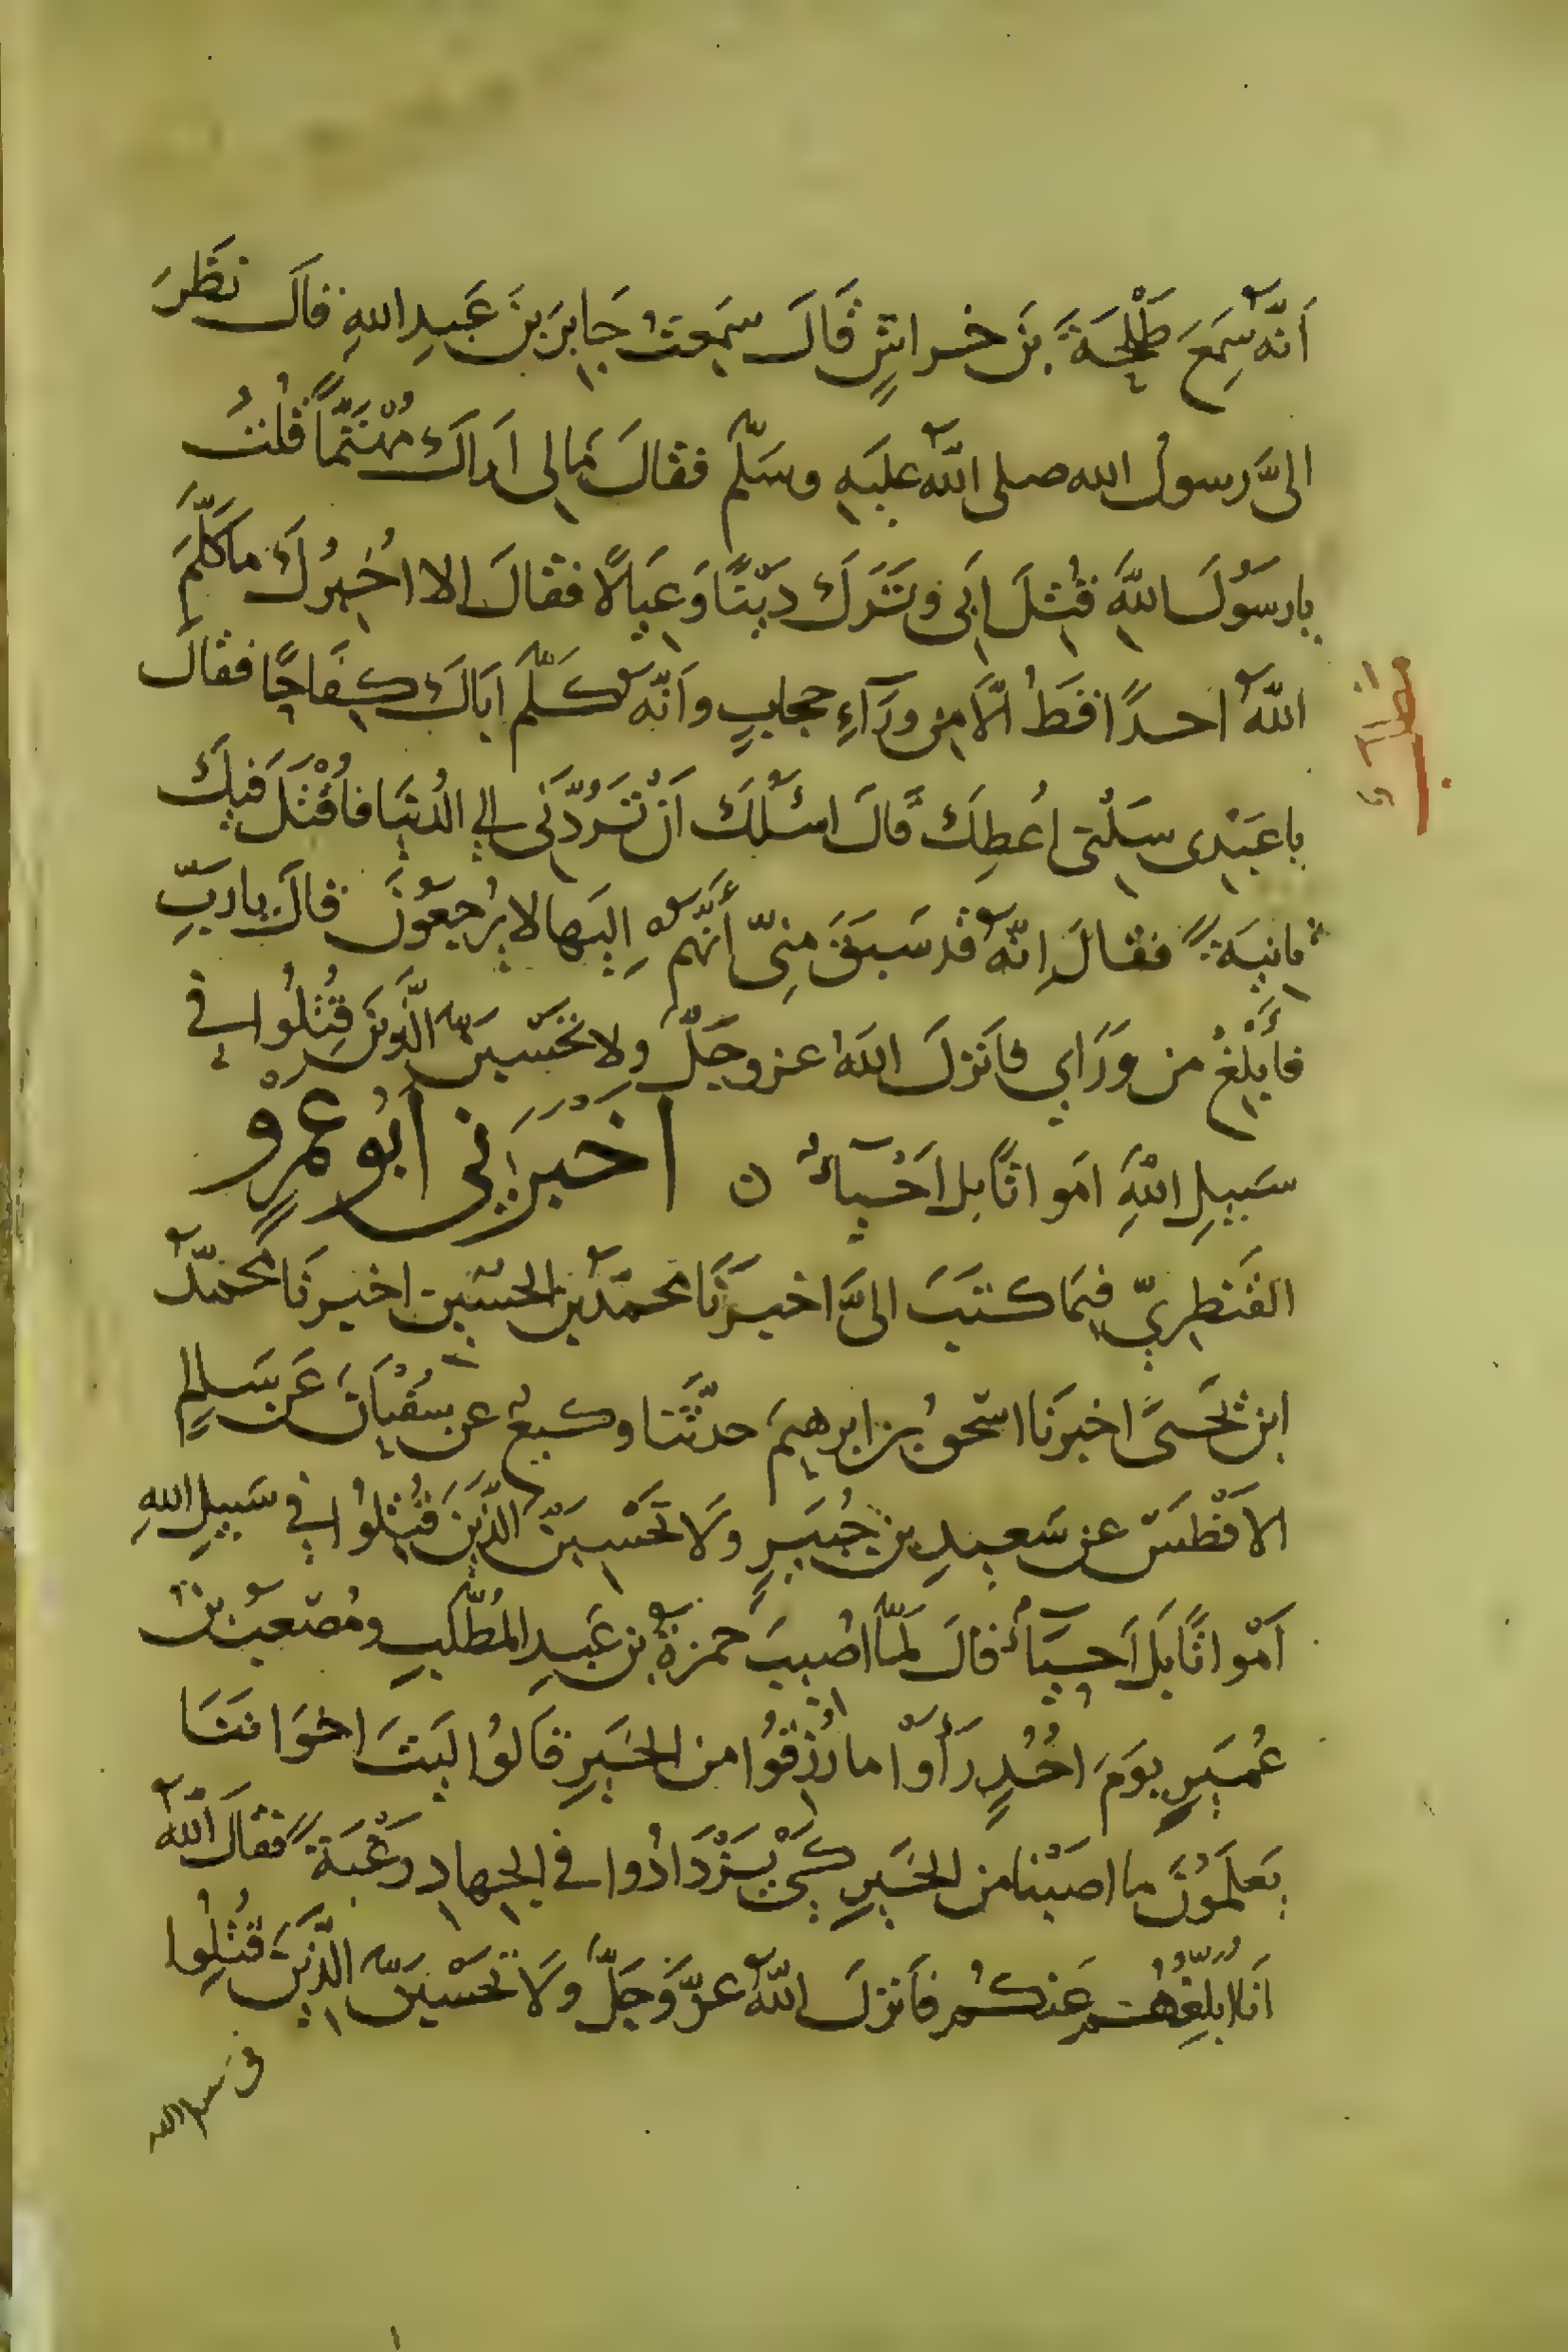 اَنَّهُ سَمِعَ طَلْحَةَ بنَ خراشٍ قَالَ سَمِعتُ جَابرَ بنَ عَبدِ اللهِ قال نَظَرَ
الىَّ رسولُ الله صلى اللهُ عليَهِ وسَلَّم فقالَ مَالى اَراكَ مُهْتَمًّا قُلتُ
يارسَوُلَ اللهِ قُتِلَ اَبى وتَرَكَ دَيْنًا وَعِيالًا فقالَ الا اُخبِرُكَ ماكَلَّمَ
اللهُ احدًا قَطُ الَّا مِن ورَآءِ حجابٍ واَنَّهُ كلَّمَ اَبَاكَ كِفَاحًا فقالَ
ياعَبْدِى سَلْنى اُعْطِكَ قالَ اسْئَلُكَ اَنْ تَرُدَّنى الي الدُنيَا فاُقْتَلَ فيكَ
ثانِيَةً فقالَ اِنّهُ قَد سَبَقَ مِنِّى أَنَّهُمْ اِليَها لا يَرْجِعُونَ قالَ يا ربِّ
فأَبْلِغْ من وَرَاىِ فاَنزلَ اللهُ عز وجَلّ ولا تحْسَبنَّ الَّذينَ قُتِلُوا في
سَبيلِ اللهِ اَمواتًا بل اَحْياءٌ ن اَخْبَرَنِى اَبُو عَمرٍو
القَنطِريّ فيمَا كتبَ الىَّ اخبرَنَا محمدُ بن الحسَين اخبرنَا محمدُ
ابن يَحيىَ اخبرَنَا اسحقُ بن ابرهيمَ حدثَنَا وكيعٌ عن سُفْيَانَ عَن سَالِمٍ
الاَفْطَسِ عن سَعيدِ بن جُبَيرٍ ولَا تحْسبَنَّ الَّذينَ قُتِلُوا في سَبيلِ اللهِ
اَمْواتًا بَل اَحيَآءٌ قالَ لَمّا اُصيبَ حمزةُ بن عَبدِ المُطَّلبِ ومُصْعَبُ بنُ
عُمَيرٍ يومَ اُحُدٍ رَأَوْا ما رُزِقُوا من الخَيرِ قَالوُا لَيتَ اخوَانَنَا
يَعلَمُونَ ما اصَبْنا من الخَيرِ كَىْ يَزْدَادُوا في الجهادِ رَغْبَةً فَقالَ اللهُ
اَنَا اُبلِّغُهُم عَنكُم فاَنزلَ اللهُ عزَّ وَجَلَّ ولَا تحْسَبنَّ الذينَ قُتِلُوا
في سبيل الله